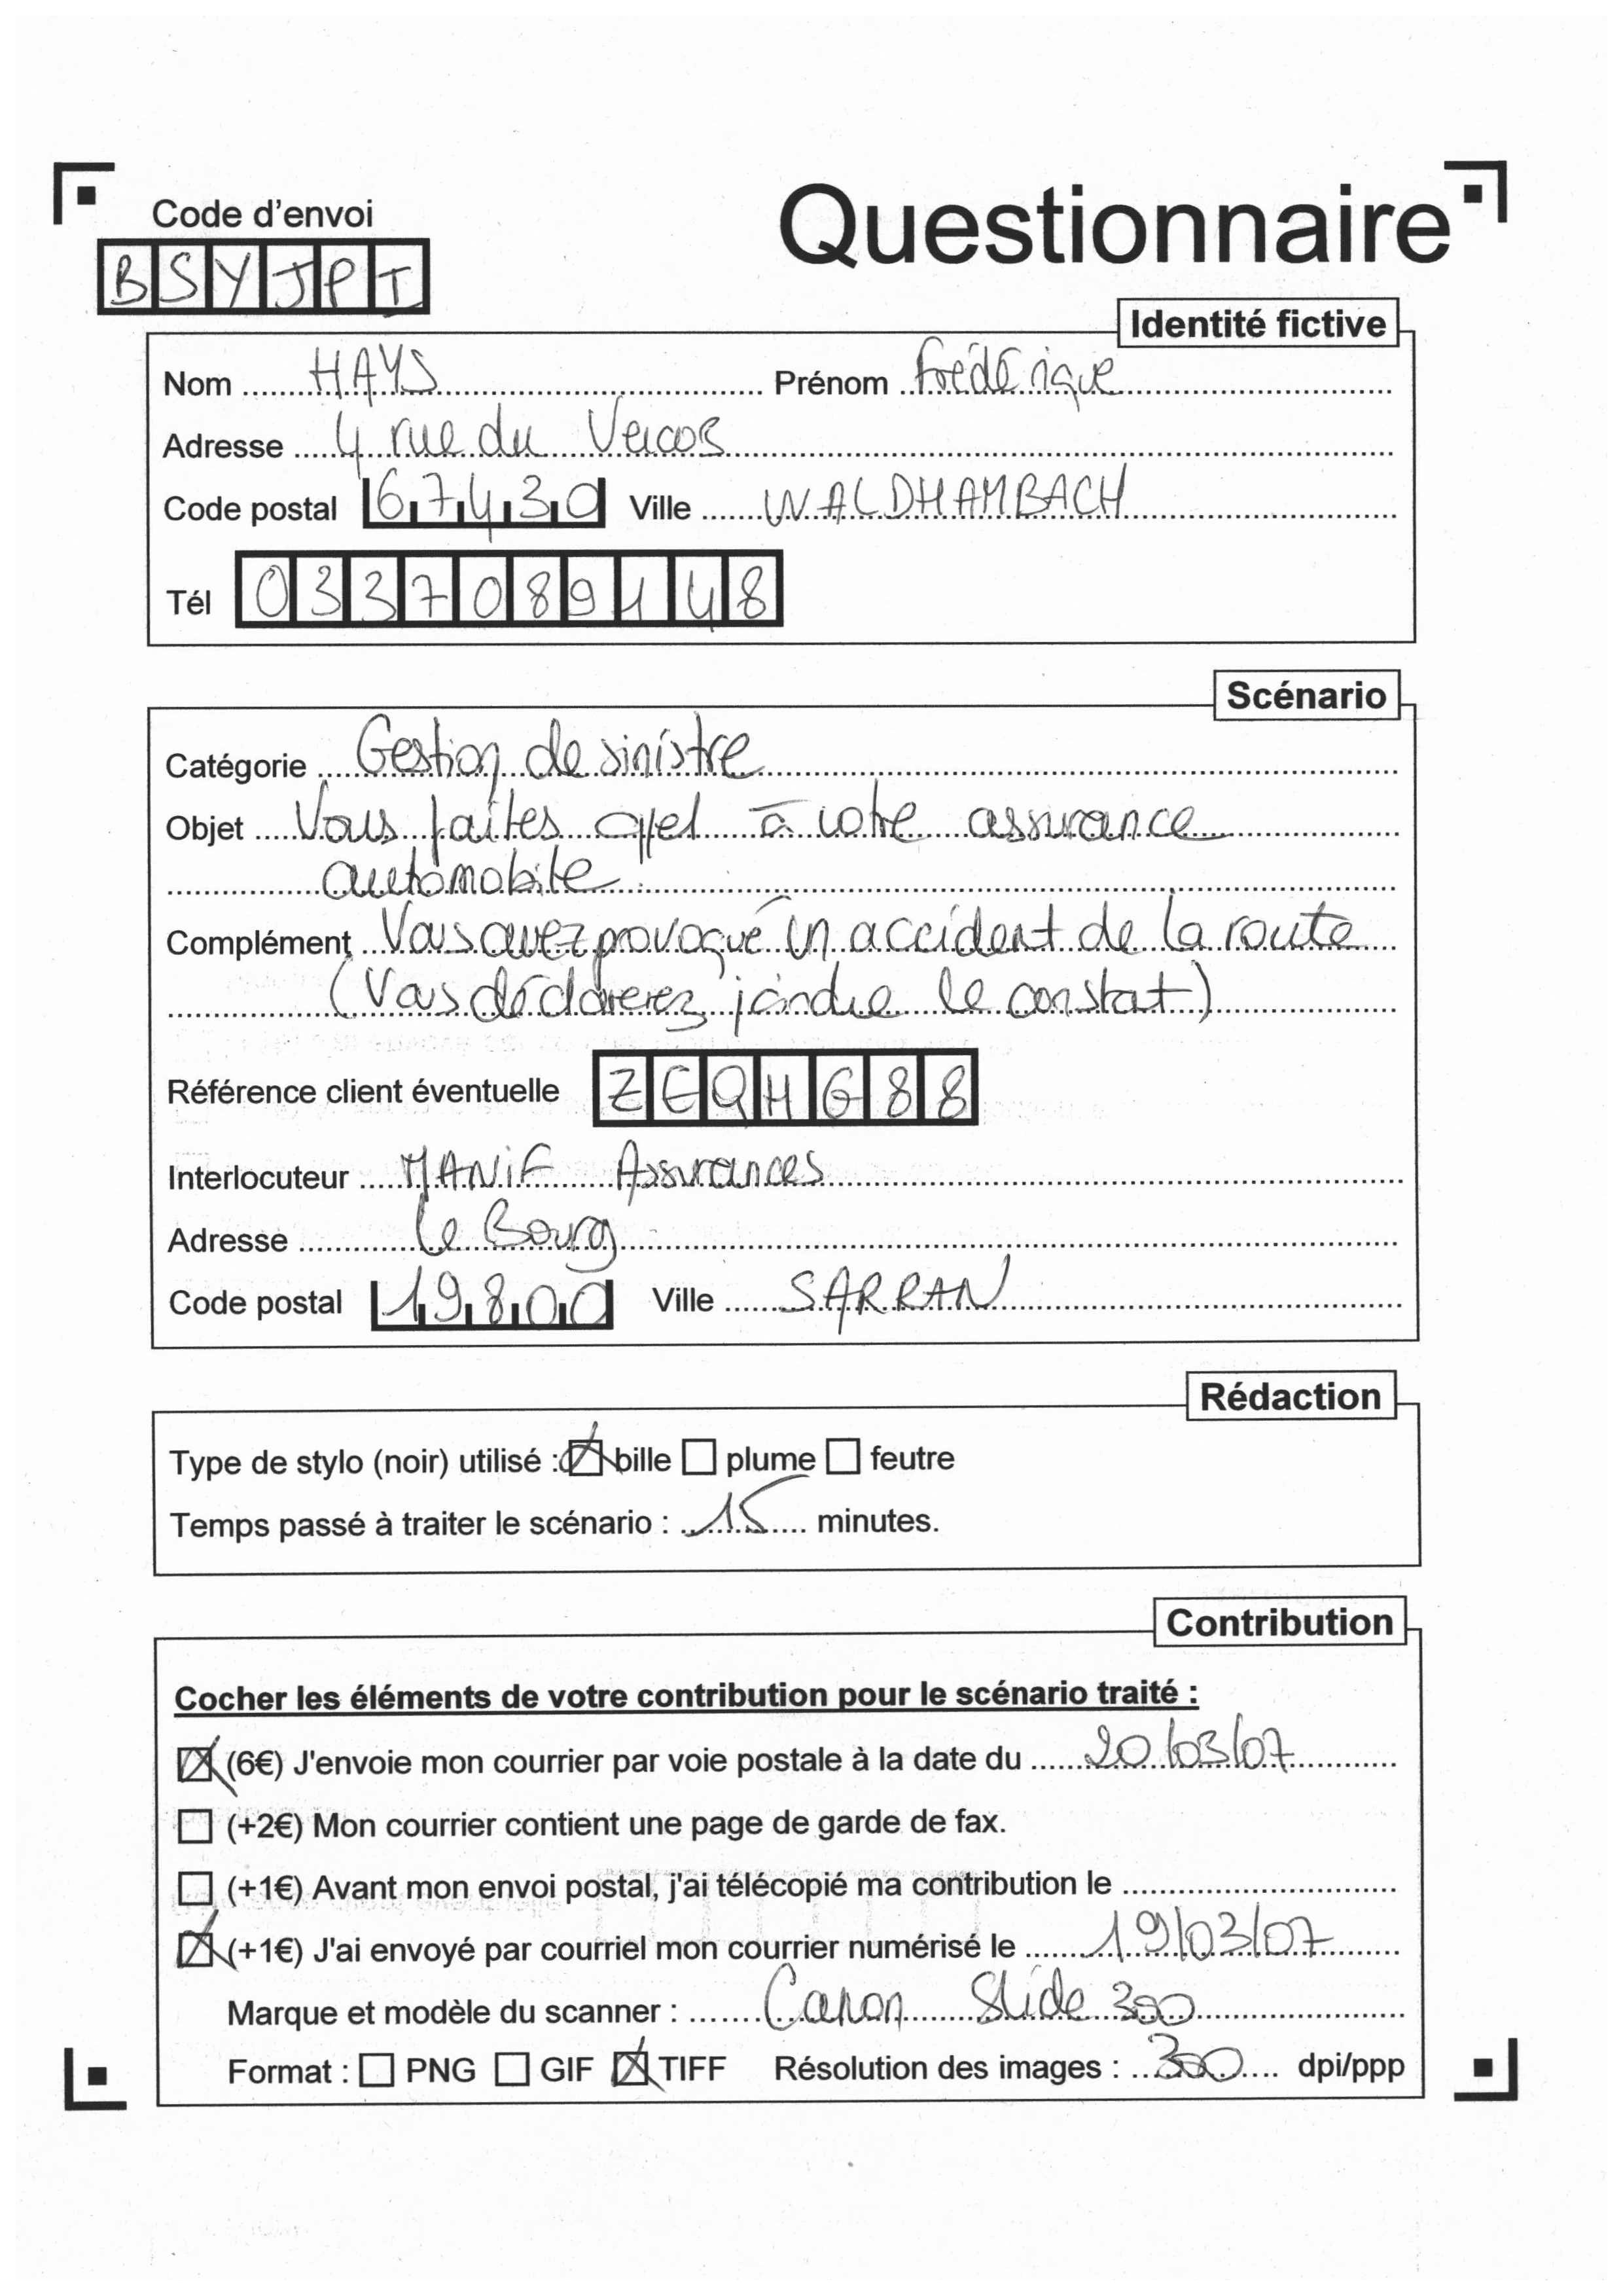 Questionnaire
Code d'envoi
BSYJPI
Identité fictive
Nom HAYS Prénom Frédérique
Adresse 4 rue du
Code postal 67430 Ville WALDHAMBACH
Tél 0337089148
Scénario
Catégorie Gestion de sinistre
Objet Vous faites appel à votre assurance
automobile
Complément Vous avez provoqué un accident de la route
(Vous déclarerez joindre le constat)
Référence client éventuelle ZEQHG88
Interlocuteur MANIF Assurances
Adresse Le Bourg
Code postal 19800 Ville SARRAN
Rédaction
Type de stylo (noir) utilisé : bille plume feutre
Temps passé à traiter le scénario : 15 minutes.
Contribution
Cocher les éléments de votre contribution pour le scénario traité :
(6€) J'envoie mon courrier par voie postale à la date du 20/03/07
(+2€) Mon courrier contient une page de garde de fax.
(+1€) Avant mon envoi postal, j'ai télécopié ma contribution le
(+1€) J'ai envoyé par courriel mon courrier numérisé le 19/03/07
Marque et modèle du scanner : Canon Slide 300
Format : PNG GIF TIFF Résolution des images : 300 dpi/ppp